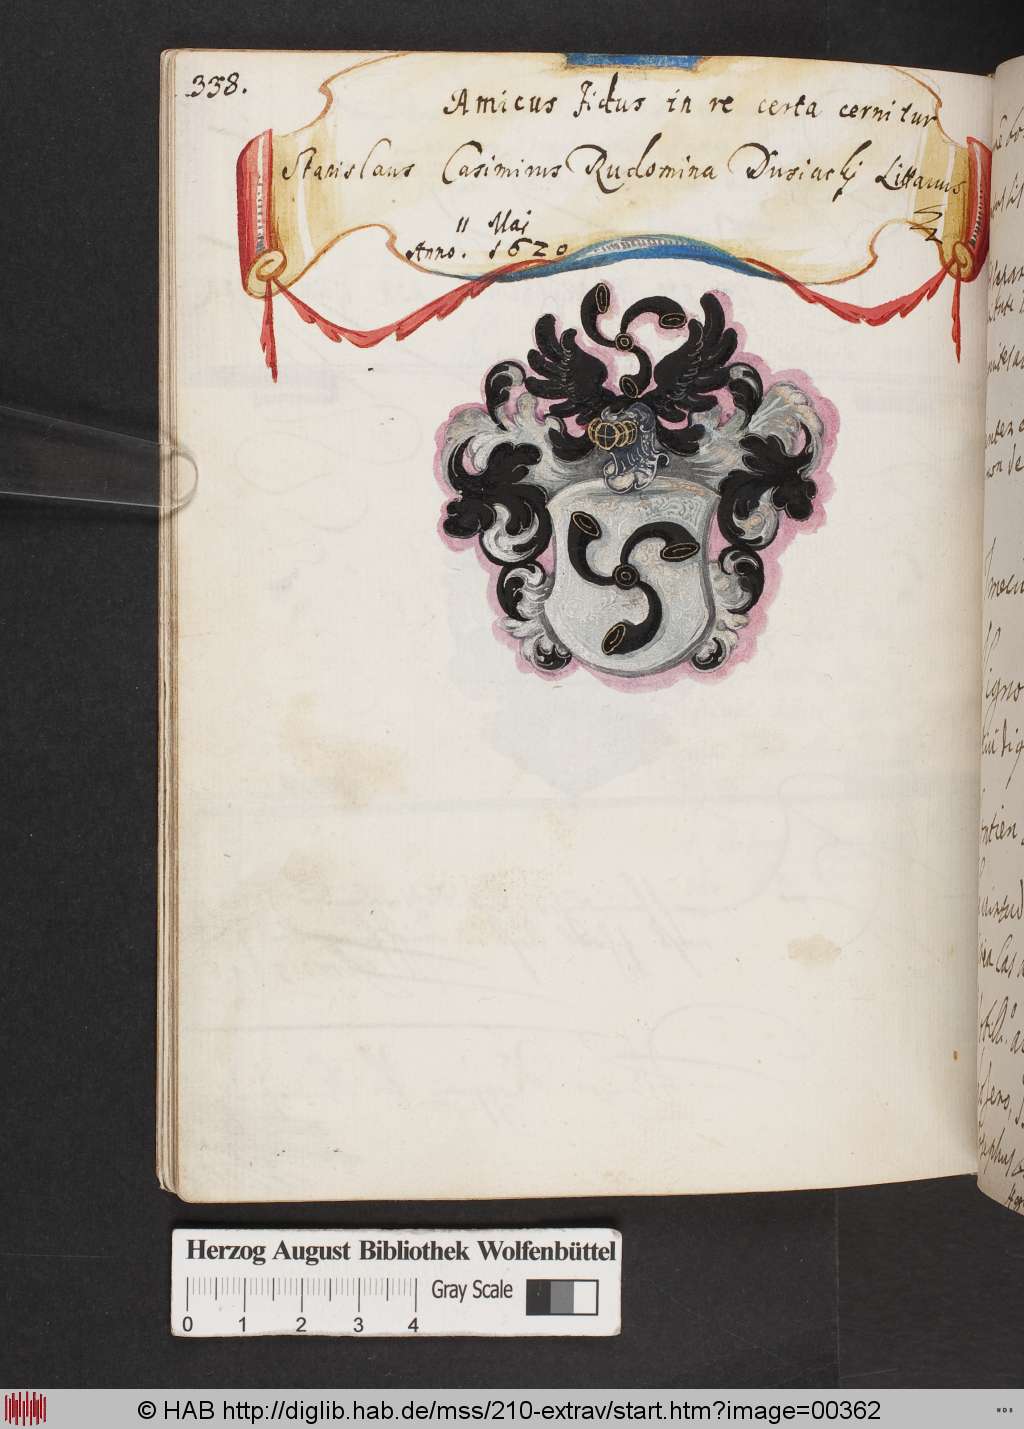 338.
Amicus fidus in re certa cernitur
Stanislaus Casimirus Rudomina Dusiacki Littavus
11 Maj
Anno. 1620
Herzog August Bibliothek Wolfenbüttel
Gray Scale
0 1 2 3 4
© HAB http://diglib.hab.de/mss/210-extrav/start.htm?image=00362